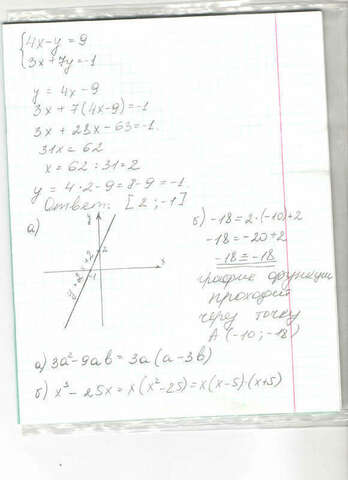 {4x-y=9
3x+7y=-1
y=4x-9
3x+7(4x-9)=-1
3x+28x-63=-1.
31x=62
x=62:31=2
y=4·2-9=8-9=-1.
Ответ: [2;-1]
а)
y
2
-1
x
y=2x+2
б) -18=2·(-10)+2
-18=-20+2
-18=-18
график функции
проходит
через точку
А (-10;-18)
а) 3a²-9ab=3a(a-3b)
б) x³-25x=x(x²-25)=x(x-5)·(x+5)